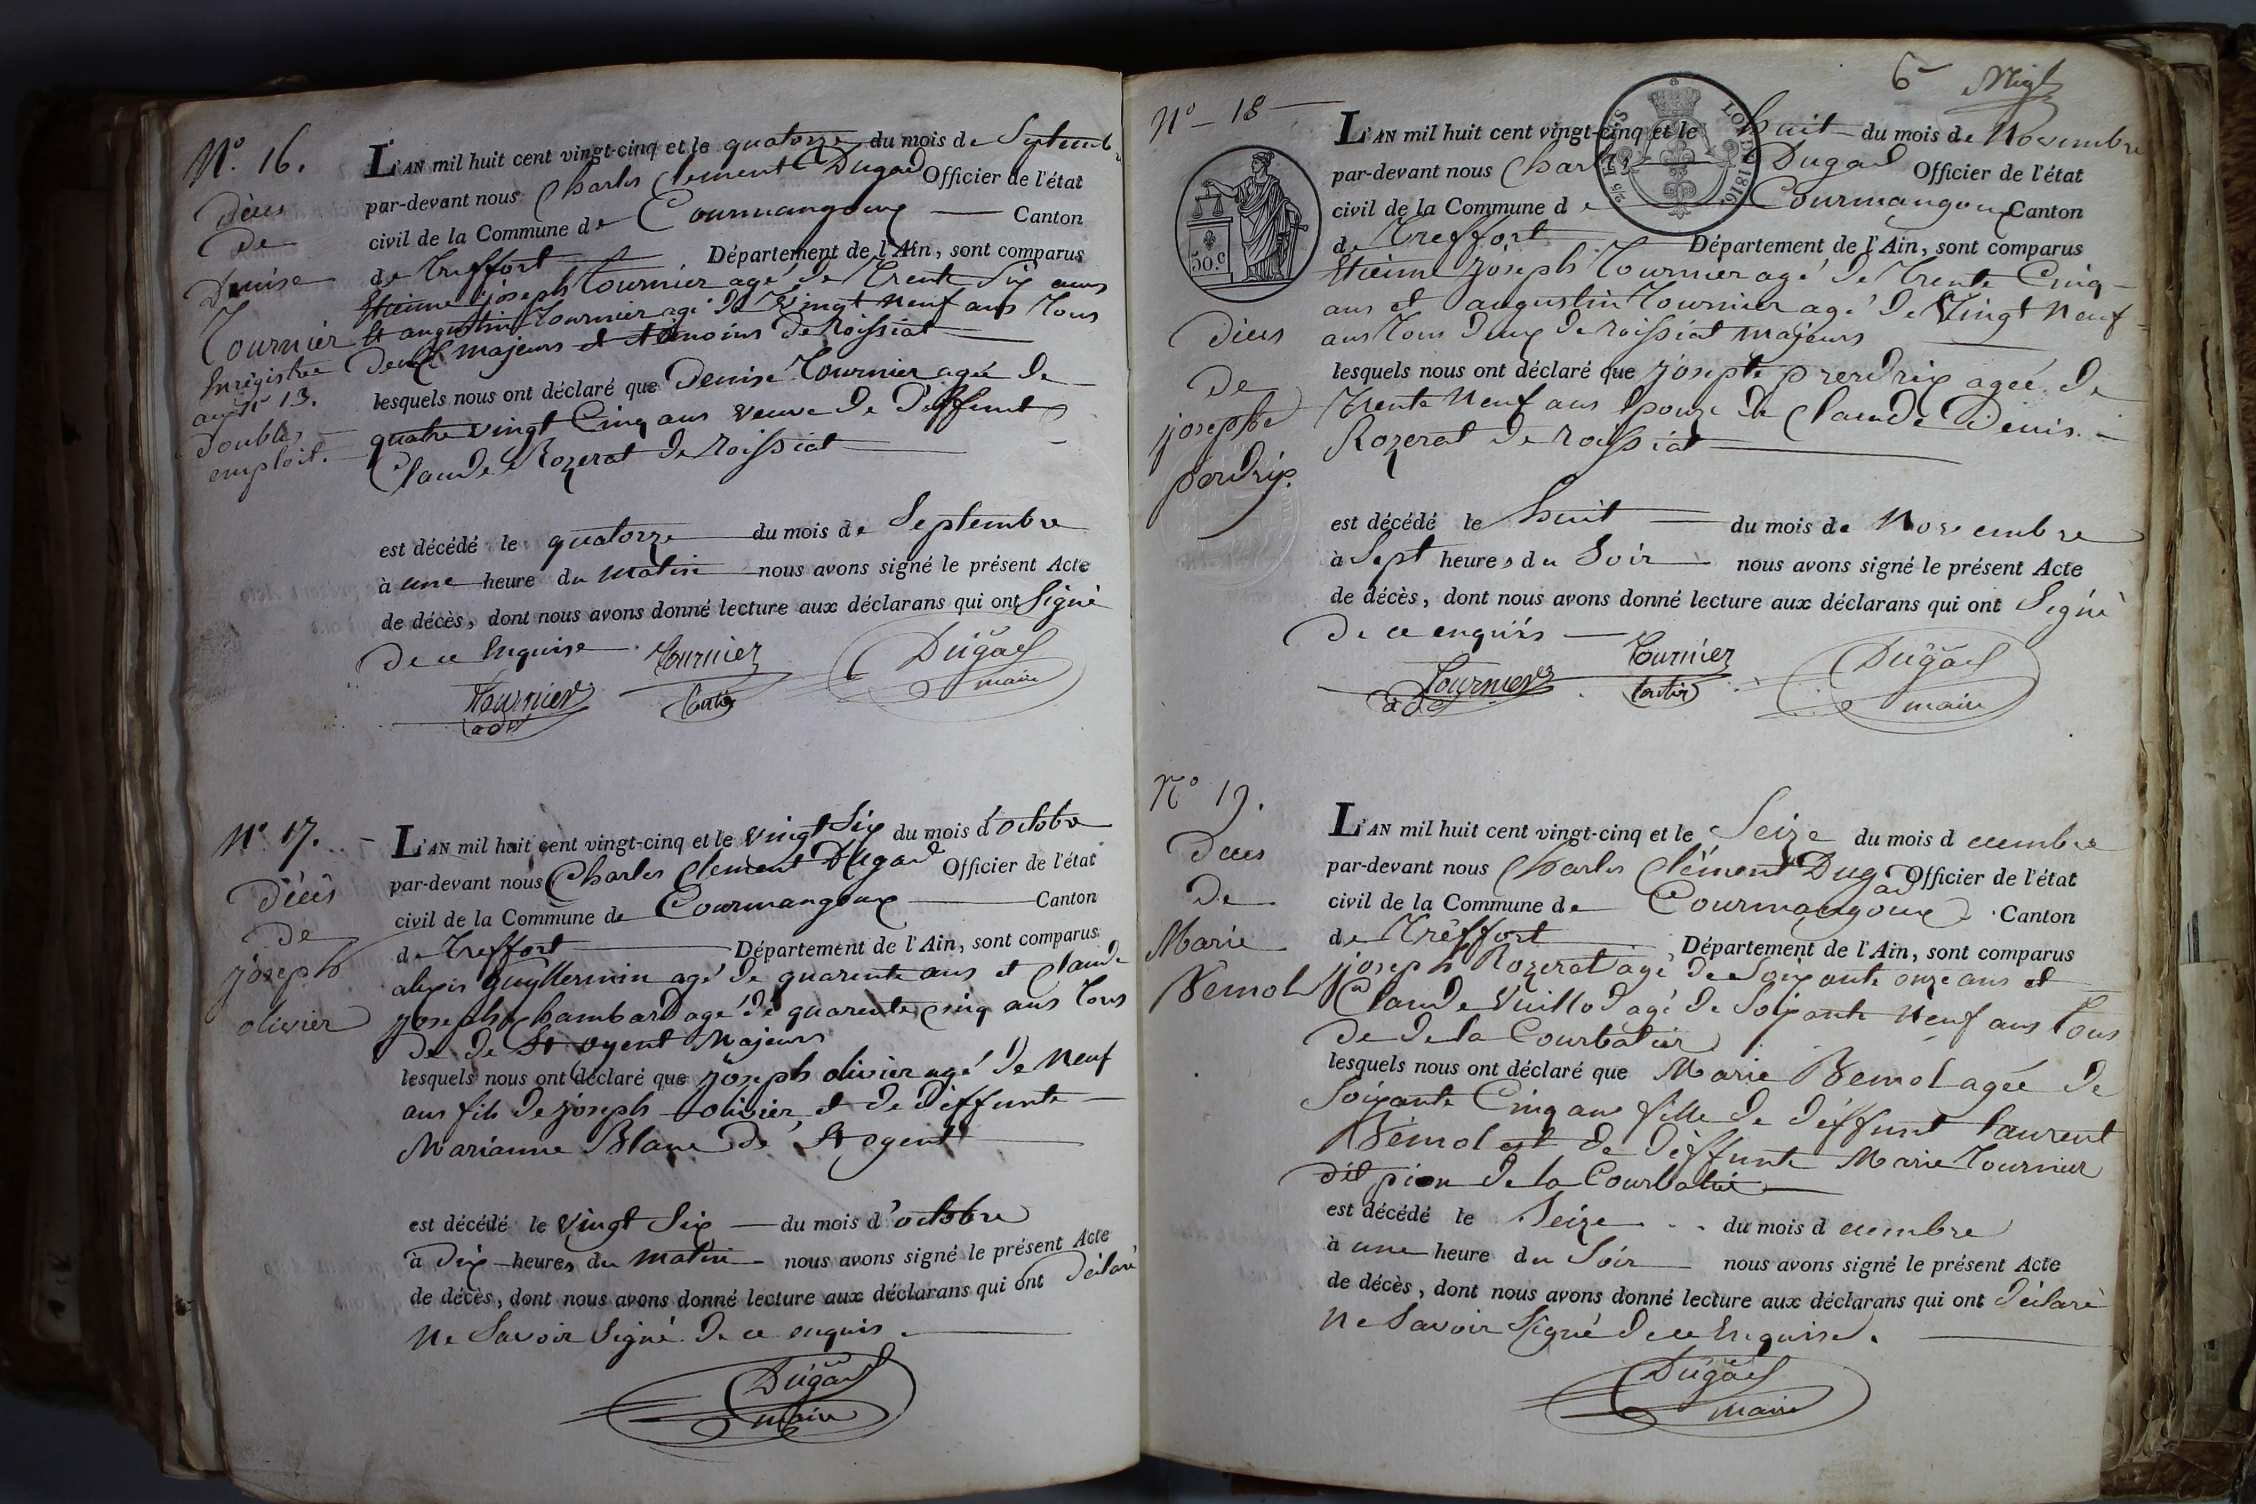 N° 16.
Décès
de
Denise
Tournier
Enregistrée
au n° 13.
doubles
emploit.
L'AN mil huit cent vingt-cinq et le quatorze du mois de Septembre
par-devant nous Charles Clement Dugad Officier de l'état
civil de la Commune de Courmangoux Canton
de Treffort Département de l'Ain, sont comparus
Etienne joseph Tournier agé de Trente Six ans
Et augustin Tournier agé de Vingt neuf ans Tous
Deux majeurs et témoins de Roissiat
lesquels nous ont déclaré que Denise Tournier agée de
quatre vingt Cinq ans veuve de Deffunt
Claude Rozerat de Roissiat
est décédé le quatorze du mois de Septembre
à une heure du matin nous avons signé le présent Acte
de décès, dont nous avons donné lecture aux déclarans qui ont Signé
De ce Enquise
Tournier
Dugad
maire
Tournier
adt
N° 17.
Décès
de
joseph
olivier
L'AN mil huit cent vingt-cinq et le vingt Six du mois d'octobre
par-devant nous Charles Clement Dugad Officier de l'état
civil de la Commune de Courmangoux Canton
de Treffort Département de l'Ain, sont comparus
alexis Guyllermin agé de quarente ans et Claude
joseph Chambard agé de quarente cinq ans Tous
de de St oyent Majeurs
lesquels nous ont déclaré que joseph olivier agé de Neuf
ans fils de joseph olivier et de Déffunte
Marianne Blanc de St ogent
est décédé le vingt Six du mois d'octobre
à dix heures du matin nous avons signé le présent Acte
de décès, dont nous avons donné lecture aux déclarans qui ont déclaré
Ne Savoir Signé de ce enquis.
Dugad
maire
6
N° 18
50.c
Décès
De
josephte
perdrix.
L'AN mil huit cent vingt-cinq et le huit du mois de Novembre
par-devant nous Dugad Officier de l'état
civil de la Commune de Courmangoux Canton
de Treffort Département de l'Ain, sont comparus
Etienne joseph Tournier agé de Trente Cinq
ans et augustin Tournier agé de Vingt Neuf
ans Tous deux de roissiat majeurs
lesquels nous ont déclaré que josephte prerdrix agée de
Trente Neuf ans Epouze de Claude Denis
Rozerat de roissiat
est décédé le huit du mois de Novembre
à Sept heures du Soir nous avons signé le présent Acte
de décès, dont nous avons donné lecture aux déclarans qui ont Signé
De ce enquis
Tournier
Dugad
maire
Tournier
N° 19.
Deces
De
Marie
Bemol
L'AN mil huit cent vingt-cinq et le Seize du mois d ecembre
par-devant nous Charles Clément Dugad Officier de l'état
civil de la Commune de Courmangoux Canton
de Tréffort Département de l'Ain, sont comparus
joseph Rozerat agé de Soixante onze ans et
Claude Vuillod agé de Soixante Neuf ans Tous
de de la Courbatier
lesquels nous ont déclaré que Marie Bemol agée de
Soixante Cinq ans fille de déffunt laurent
Bémol et de Déffunte Marie Tournier
dit pion de la Courbatie
est décédé le Seize du mois d ecembre
à une heure du Soir nous avons signé le présent Acte
de décès, dont nous avons donné lecture aux déclarans qui ont déclaré
Ne Savoir Signé de ce Enquise.
Dugad
maire